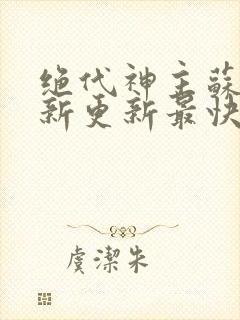 绝代神主蘇
新更新最快
虞潔朱